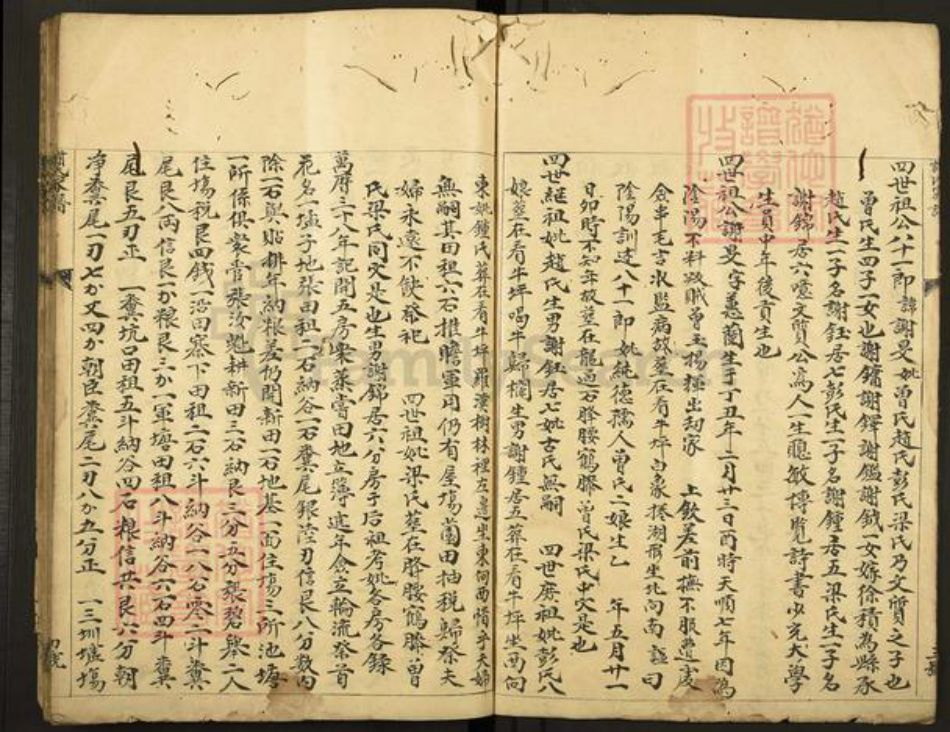 四世祖公八十一郎諱謝旻妣曾氏趙氏彭氏梁氏乃文質之子也
曾氏生四子一女也謝鏞謝鐸謝鑑謝鉞一女嫁徐積為縣承
趙氏生一子名謝鈺居七彭氏生一子名謝鍾居五梁氏生一子名
謝錦居六噫文質公為人一聰敏博覧詩書少充大學
生員中年後貢生也
四世祖公謝旻字蕙蘭生于丁丑年二月廿三日丙時天順七年因為
陰陽不料政賊曾玉楊輝出刼家 上欽差前撫不服遣
僉事毛吉水監病故葬在看牛坪白象捲湖形坐北向南謚曰
陰陽訓述八十一郎 妣純德孺人曾氏二娘生乙 年五月廿一
日夘時不知年故葬在龍過石降腰窩滕曾氏梁氏中穴是也
四世継祖妣趙氏生男謝鈺居七妣古氏無嗣 四世庶祖妣彭氏八
娘葬在看牛坪喝牛歸欄生男謝鍾居五葬在看牛坪坐西向
東妣鍾氏葬在看牛坪羅漢樹林裡左邊坐東向西惜乎夫婦
無嗣其田租六石推瞻軍用仍有屋塲薗田抽税歸祭夫
婦永遠不缺祭祀 四世祖妣梁氏葬在降腰窩滕曾
氏梁氏同穴是也生男謝錦居六分房子后祖考妣各房各録
萬曆三十八年記開五房衆蒸嘗田地立簿逓年僉立輪流祭首
花名一墟子地張田租二石納谷一石糞尾銀陸刃信艮八分数内
除一石與貼排年納粮差仍開新田一石地基一面住塲三所池塘
一所係俱衆嘗張汝魁耕新田三石納艮三分五分裂碧磜二人
住塲税艮四錢一沿田寨下田租二石六斗納谷一八石零二斗糞
尾艮八兩信艮一分粮艮三分一軍塢田租八斗納谷六石四斗糞
尾艮五刃正 一糞坑口田租五斗納谷四石粮信共艮六分朝
净糞尾一刀七分又四分朝臣糞尾二刃八分五分正 一三圳墟塲